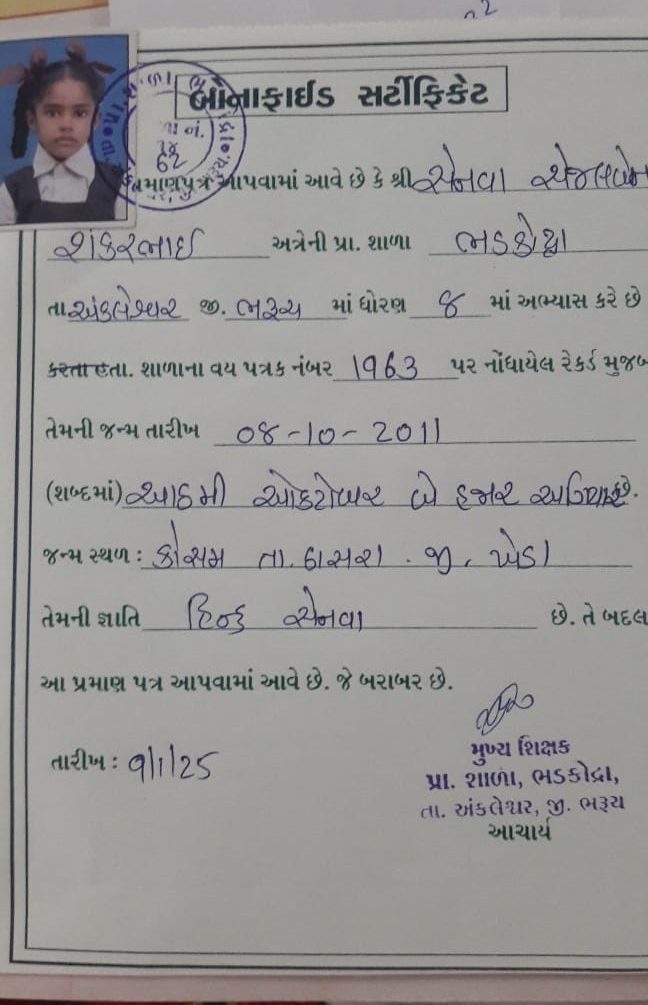 બોનાફાઈડ સર્ટીફિકેટ
પ્રમાણપત્ર આપવામાં આવે છે કે શ્રી સેનવા સેજલબેન
શંકરભાઈ અત્રેની પ્રા. શાળા ભડકોદ્રા
તા. અંકલેશ્વર જી. ભરૂચ માં ધોરણ ૪ માં અભ્યાસ કરે છે
કરતા હતા. શાળાના વય પત્રક નંબર 1963 પર નોંધાયેલ રેકર્ડ મુજબ
તેમની જન્મ તારીખ 08-10-2011
(શબ્દમાં) આઠમી ઓક્ટોબર બે હજાર અગિયાર છે.
જન્મ સ્થળ : કોસમ તા. ઠાસરા. જી. ખેડા
તેમની જ્ઞાતિ હિન્દુ સેનવા છે. તે બદલ
આ પ્રમાણ પત્ર આપવામાં આવે છે. જે બરાબર છે.
તારીખ : ૭/1/25
મુખ્ય શિક્ષક
પ્રા. શાળા, ભડકોદ્રા,
તા. અંકલેશ્વર, જી. ભરૂચ
આચાર્ય